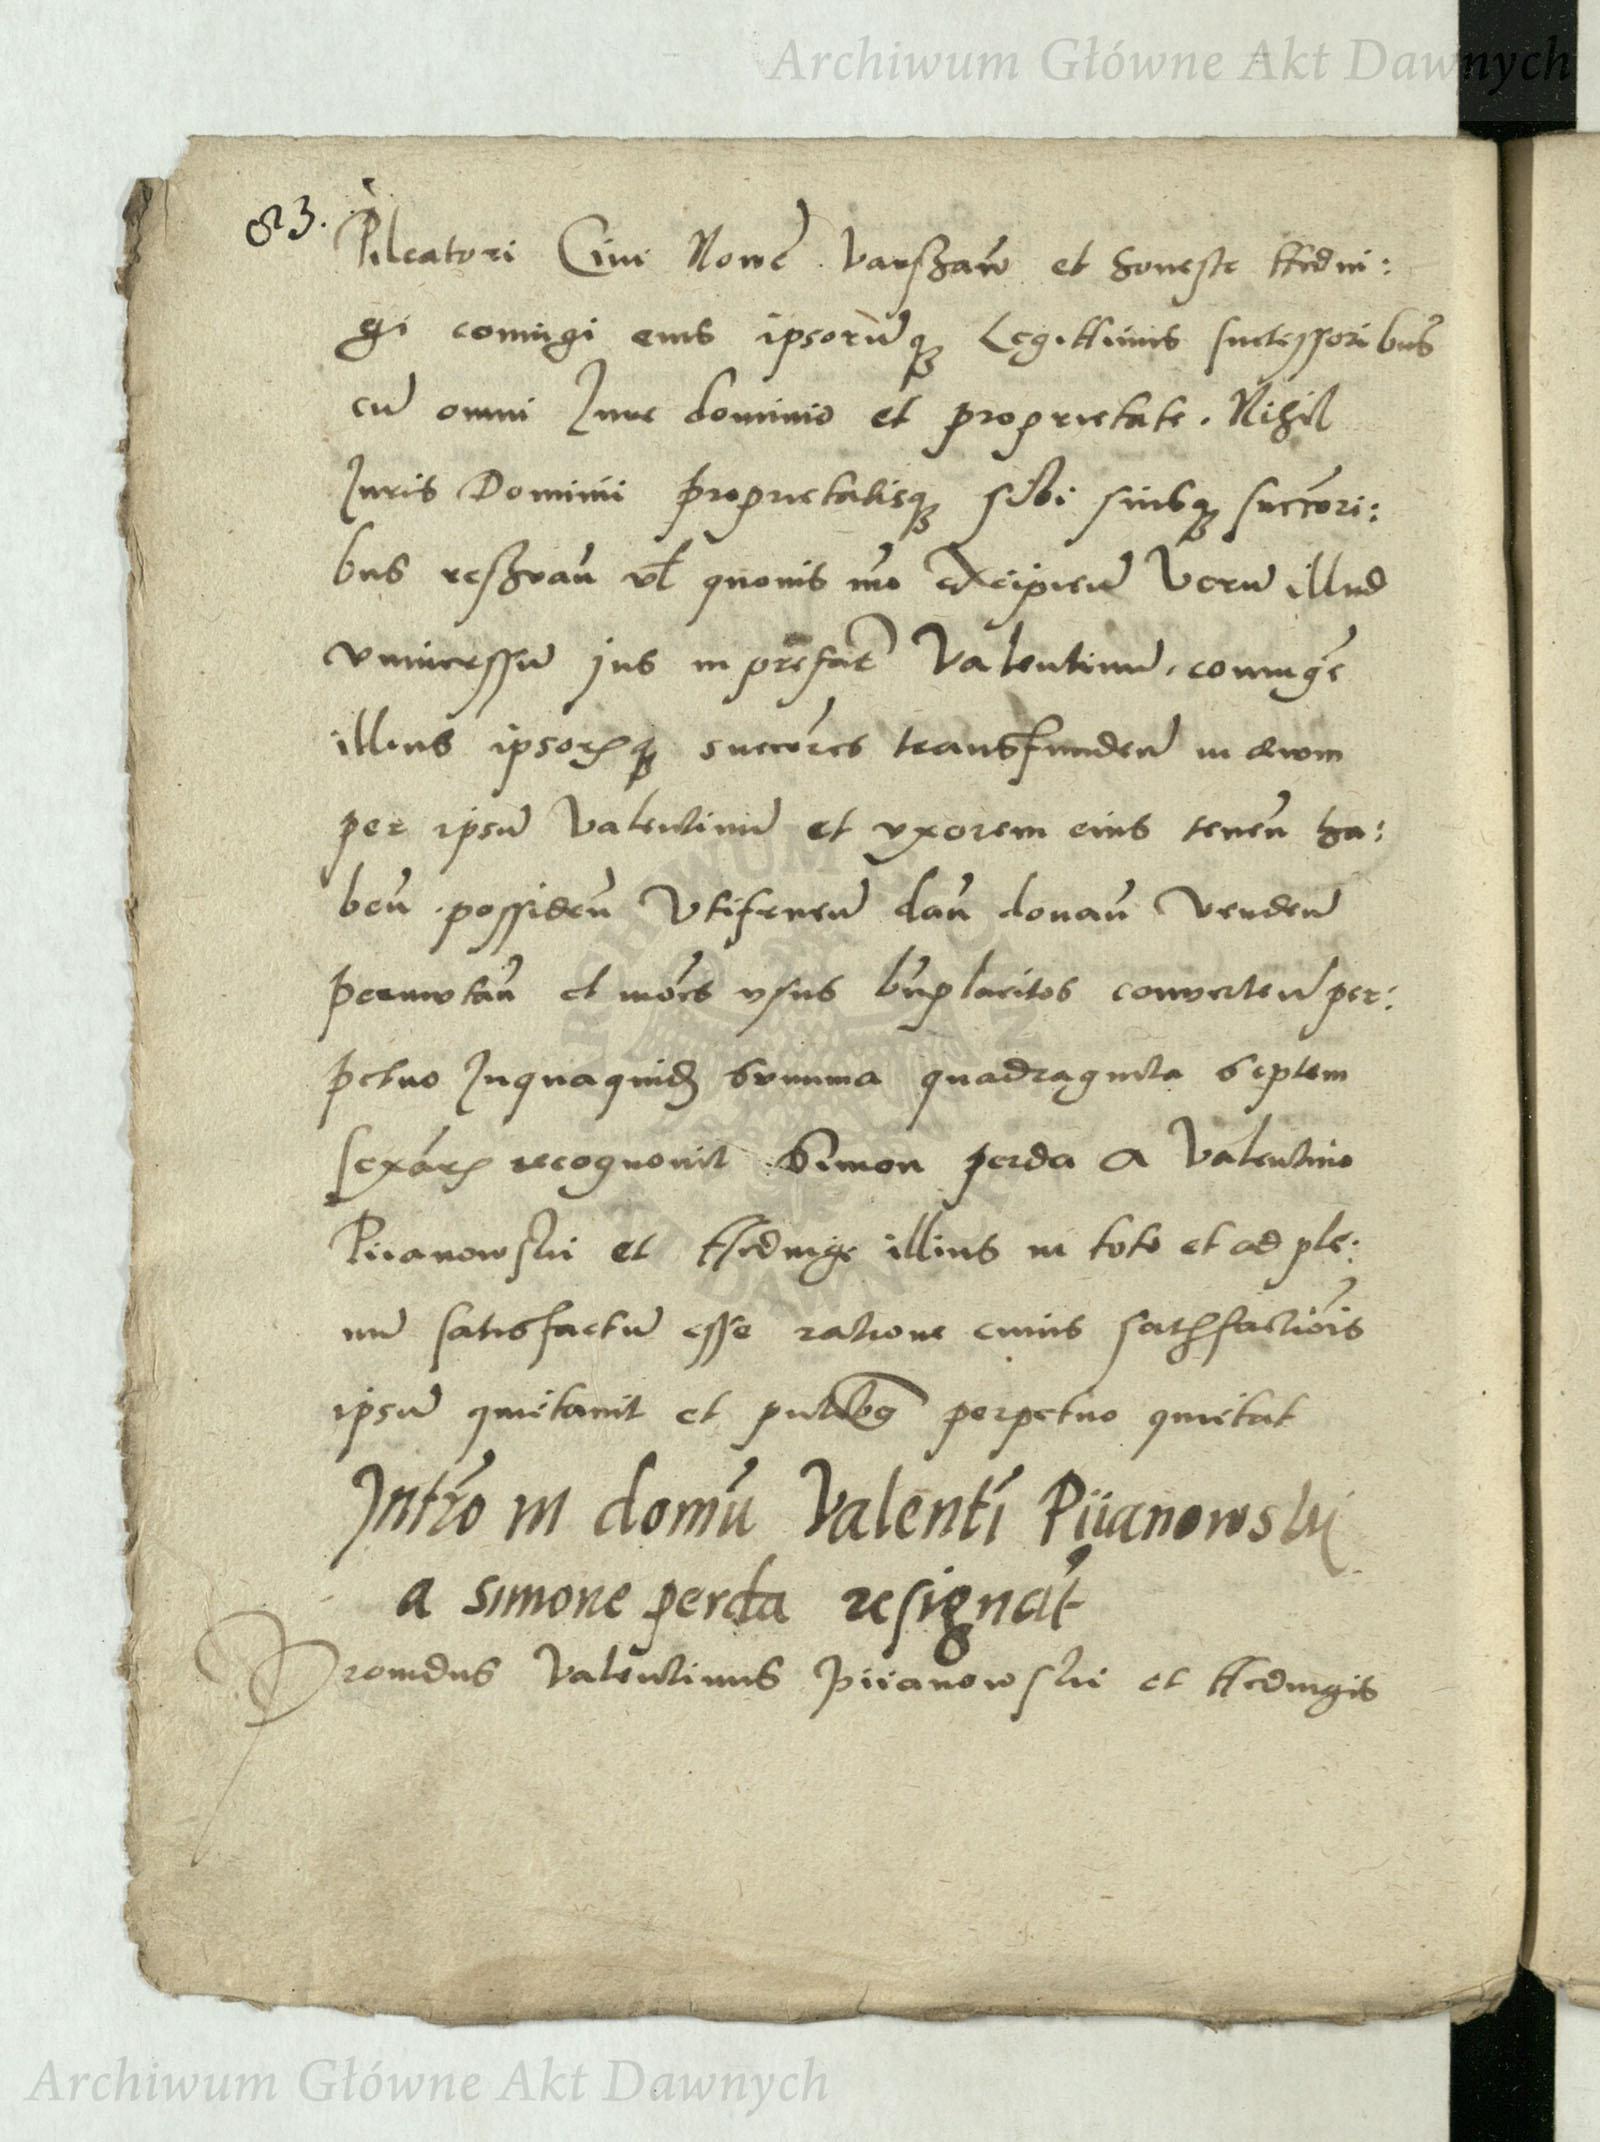 Archiwum Główne Akt Dawnych
83.
Pileatori Civi Nowe Varshaw et honeste Hedvi:
gi coniugi eius ipsorumq3 Legittimis successoribus
cu omni Jure dominio et proprietate. Nihil
Juris Dominii proprietatisq3 sibi suisq3 succori:
bus reservan vl quovis mo excipien Veru illud
universsu jus in prefat Valentinu coniuge
illius ipsorq3 succores transfunden in evom
per ipsu Valentinu et uxorem eius tenen ha:
ben possiden Utifruen dan donan venden
permutan et mores usus bnplacitos converten per:
petuo Inquaquid summa quadraginta septem
sexar recognovit Simon perda a Valentino
Piianowski et Hedvige illius in toto et ad ple:
nu satisfactu esse ratione cuius satisfactiois
ipsu quietavit et pntibq perpetuo quietat
Intro in domu Valenti Piianowski
a simone perda resignat
Providus Valentinus Piianowski et Hedvigis
Archiwum Główne Akt Dawnych